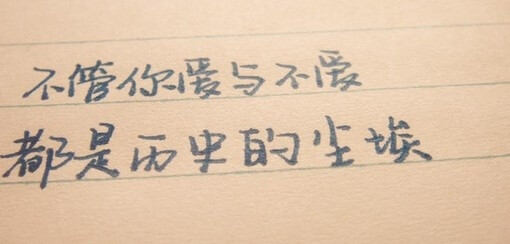 不管你爱与不爱
都是历史的尘埃